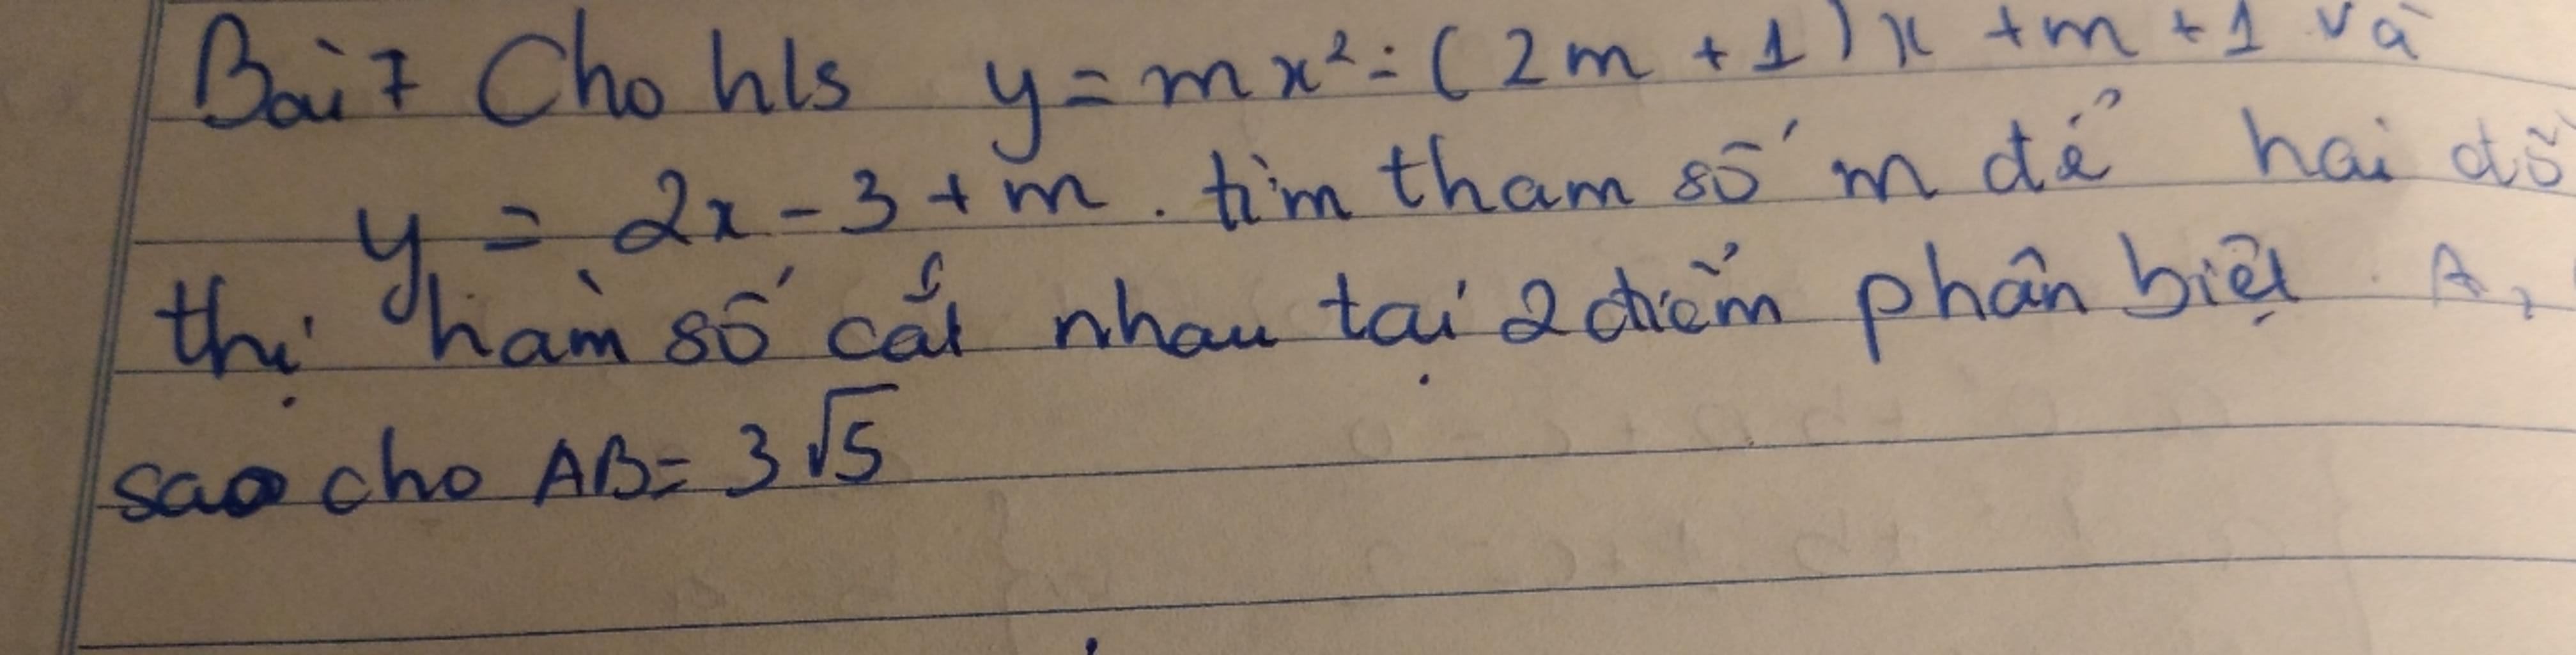 Bài 7 Cho hls y = mx² - (2m + 1) x + m + 1 và
y = 2x - 3 + m . tìm tham số m để hai đồ
thị hàm số cắt nhau tại 2 điểm phân biệt A,
sao cho AB = 3√5